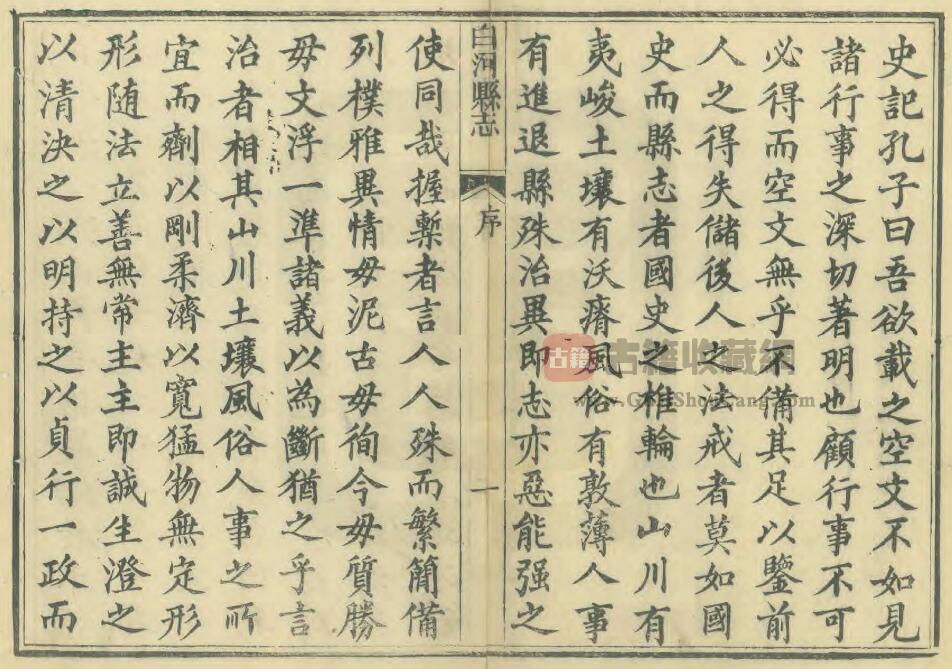 史記孔子曰吾欲載之空文不如見
諸行事之深切著明也顧行事不可
必得而空文無乎不備其足以鑒前
人之得失儲後人之法戒者莫如國
史而縣志者國史之椎輪也山川有
夷峻土壤有沃瘠風俗有敦薄人事
有進退縣殊治異即志亦惡能强之
白河縣志
序
一
使同哉握槧者言人人殊而繁簡備
列樸雅異情毋泥古毋徇今毋質勝
毋文浮一準諸義以為斷猶之乎言
治者相其山川土壤風俗人事之所
宜而劑以剛柔濟以寬猛物無定形
形随法立善無常主主即誠生澄之
以清決之以明持之以貞行一政而
古籍
古籍收藏網